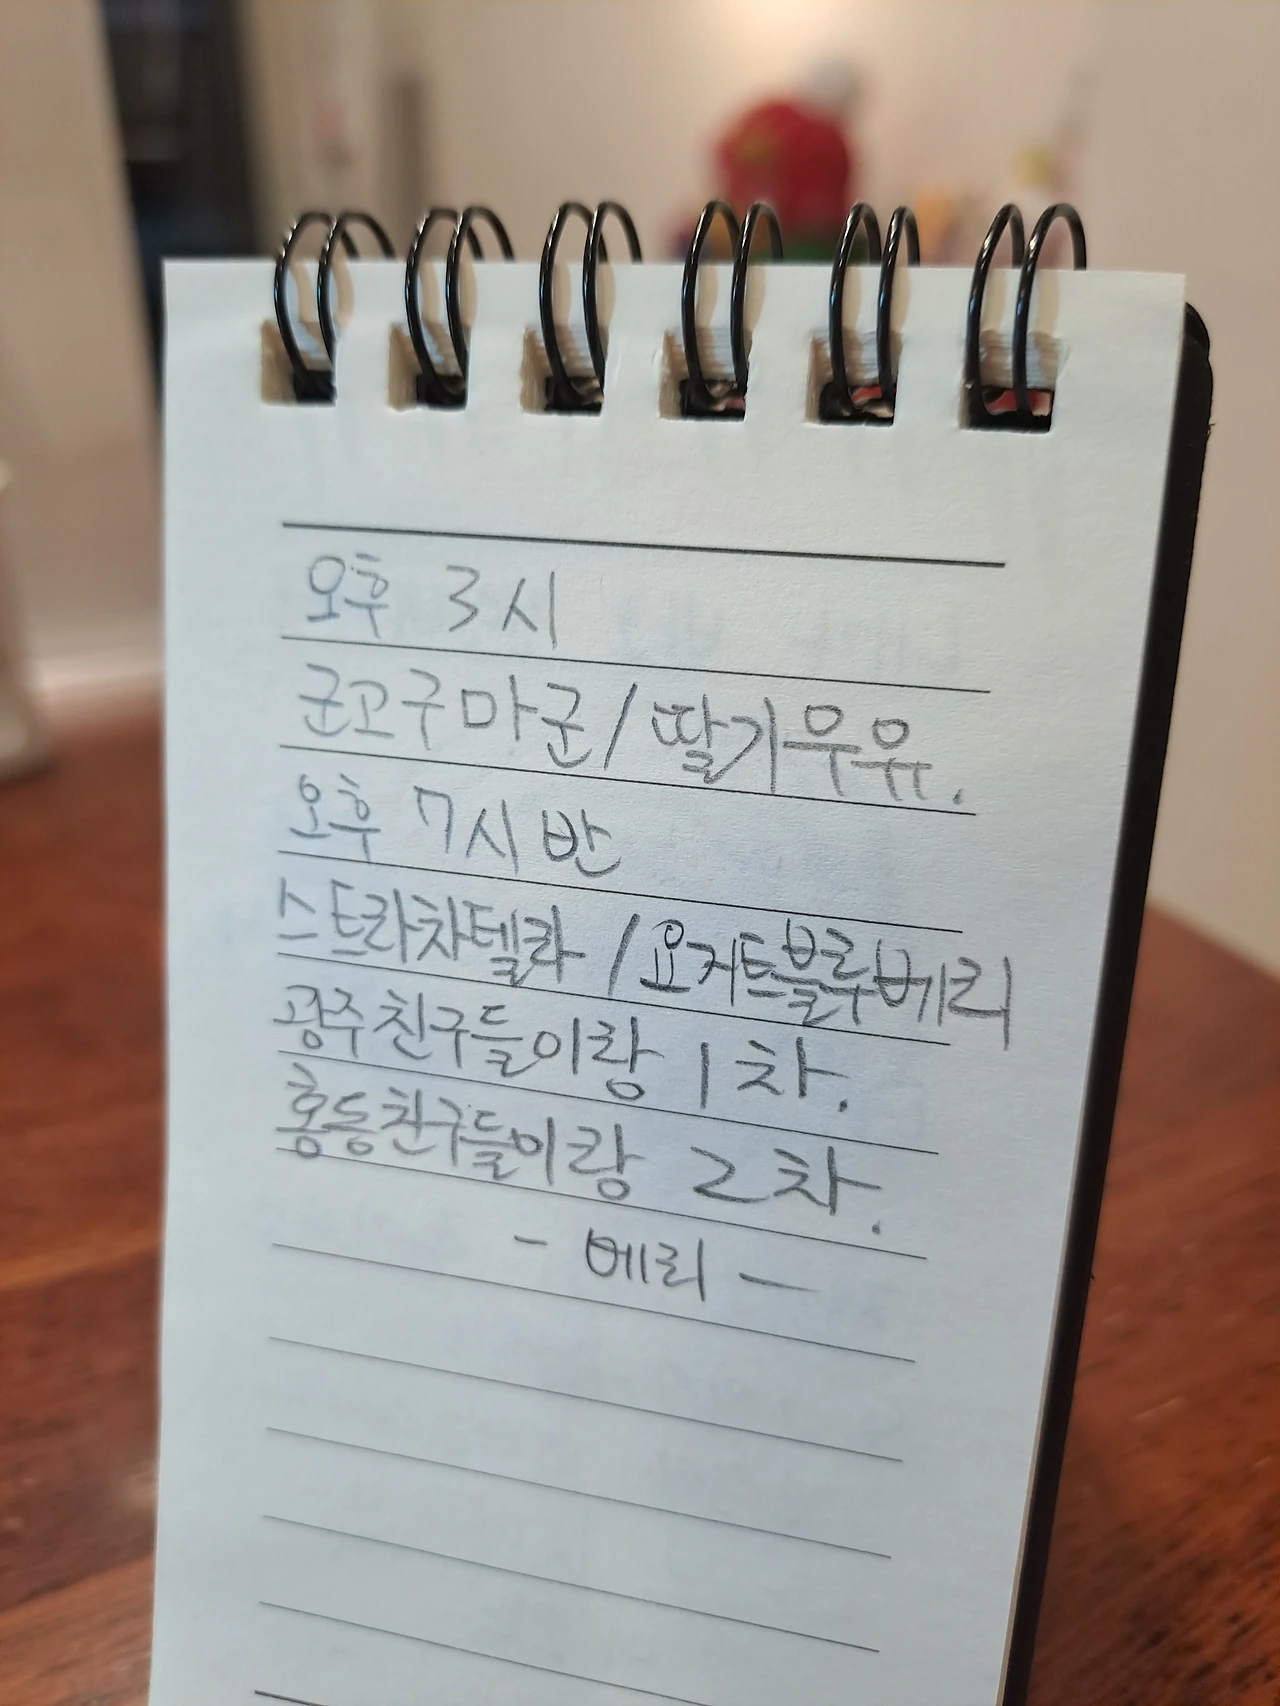 오후 3시
군고구마군/딸기우유.
오후 7시 반
스트라차텔라/요거트블루베리
광주친구들이랑 1차.
홍동친구들이랑 2차.
- 베리 -